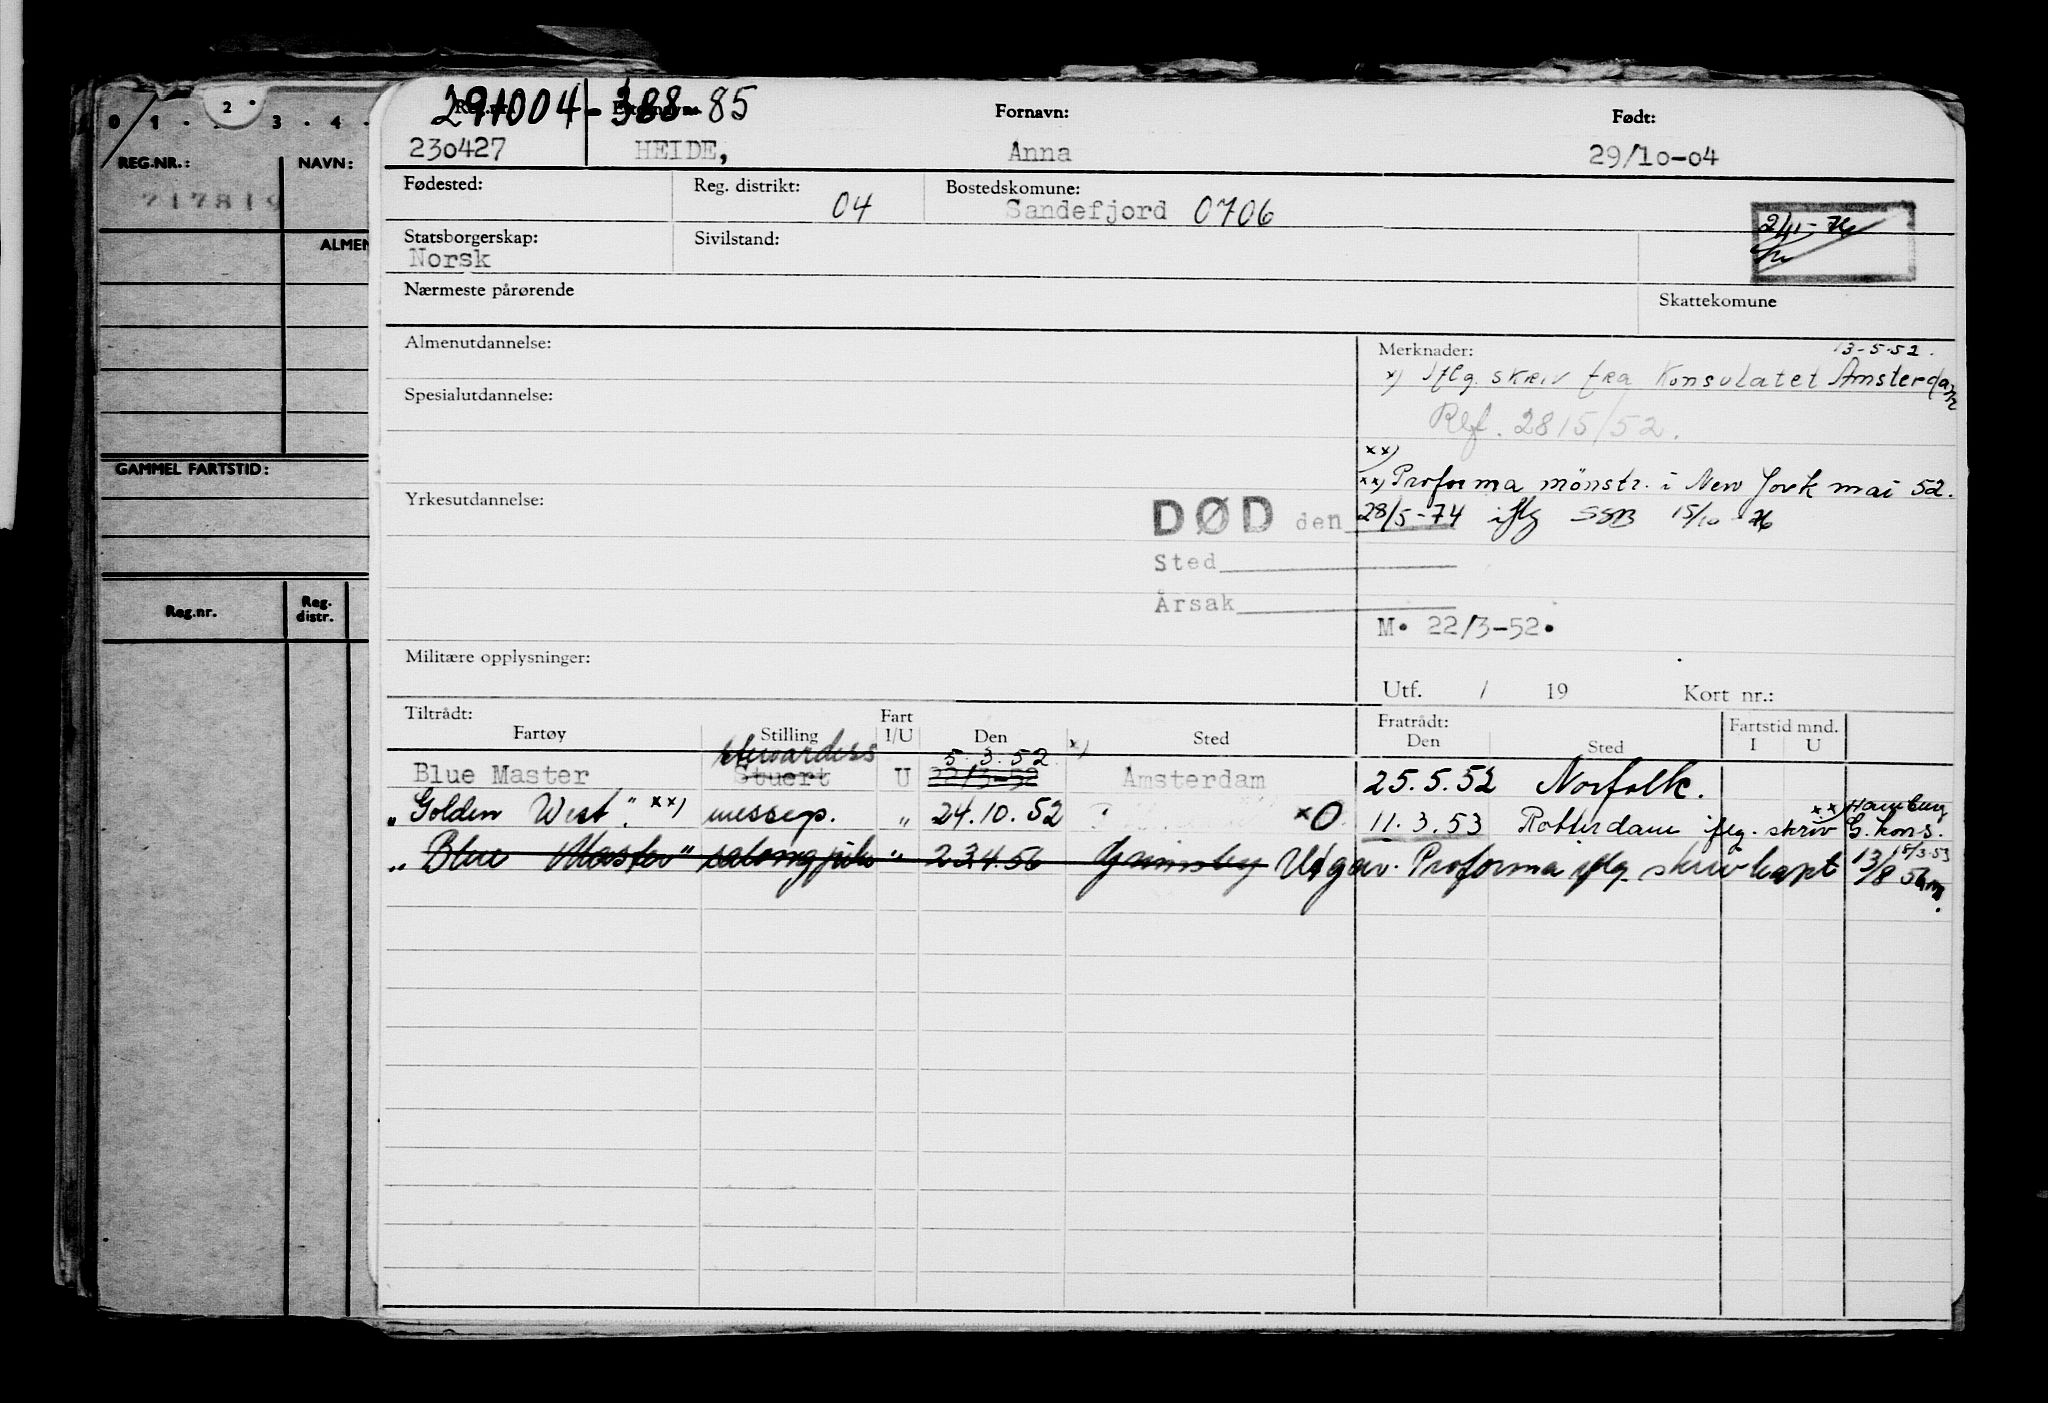 2
0 1 . . 3 . 4 .
REG.NR.: NAVN:
717819
ALMEN
GAMMEL FARTSTID:
Reg.nr. Reg. distr.
291004-388-85
Fornavn: Født:
230427 HEIDE, Anna 29/10-04
Fødested: Reg. distrikt: 04 Bostedskomune: Sandefjord 0706
2/11-76
Statsborgerskap: Norsk Sivilstand:
Nærmeste pårørende Skattekomune
Almenutdannelse: Merknader: 13-5-52.
x) Iflg. skriv fra Konsulatet Amsterdam
Spesialutdannelse:
Ref. 2815/52.
xx)
Yrkesutdannelse: xx) Proforma mönstr. i New York mai 52.
DØD den 28/5-74 iflg SSB 15/10-76
Sted
Årsak
M. 22/3-52.
Militære opplysninger:
Utf. / 19 Kort nr.:
Tiltrådt: Fratrådt: Fartstid mnd.
Fartøy Stilling Fart I/U Den Sted Den Sted I U
Stewardess 5.3.52 x)
Blue Master Stuert U 22/3-52 Amsterdam 25.5.52 Norfolk.
"Golden West". xx) messep. " 24.10.52 xO 11.3.53 Rotterdam iflg. skriv xx) Hamburg G. kons. 15/3.53
"Blue Master" salongpike " 23.4.56 Grimsby Utgår. Proforma iflg. skriv kapt 13/8 56